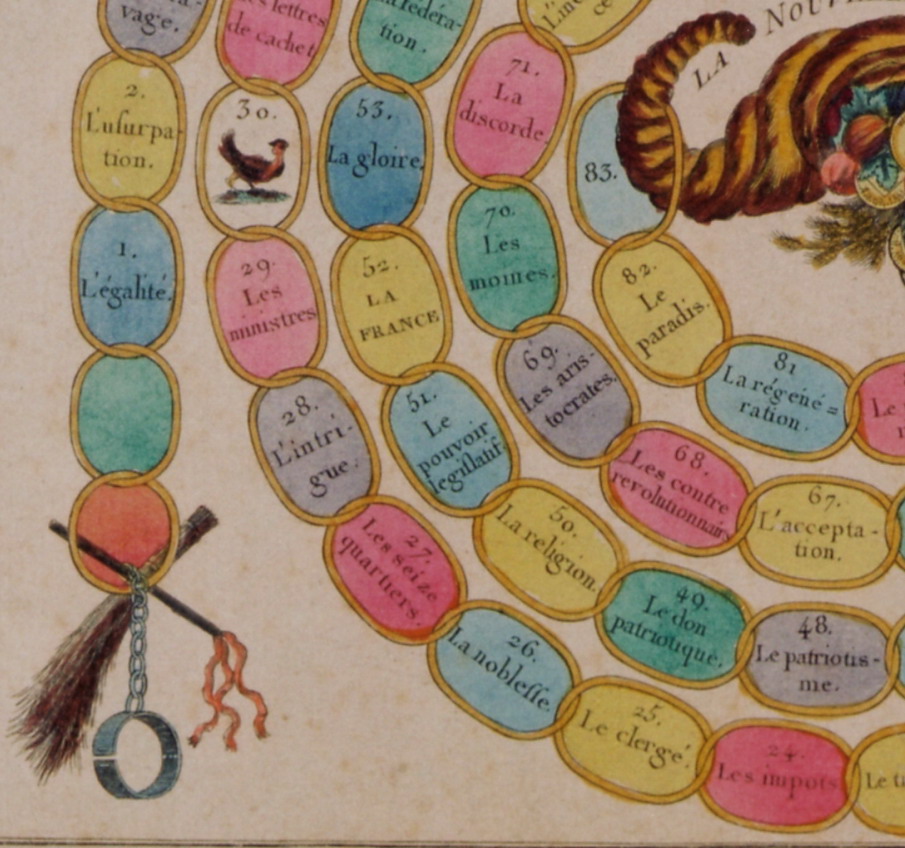 vage.
2.
L'usurpa-
tion.
1.
L'égalité.
les lettres
de cachet
30.
29.
Les
ministres
28.
L'intri-
gue.
27.
Les seize
quartiers.
26.
La noblesse.
25.
Le clergé.
24.
Les impots
la fédéra-
tion.
53.
La gloire.
52.
LA
FRANCE
51.
Le
pouvoir
legislatif
50.
La religion.
49.
Le don
patriotique.
48.
Le patriotis-
me.
71.
La
discorde.
70.
Les
moines.
69.
Les aris-
tocrates.
68.
Les contre
revolutionnairs
67.
L'accepta-
tion.
83.
82.
Le
paradis.
81
La régéné=
ration.
Le
LA